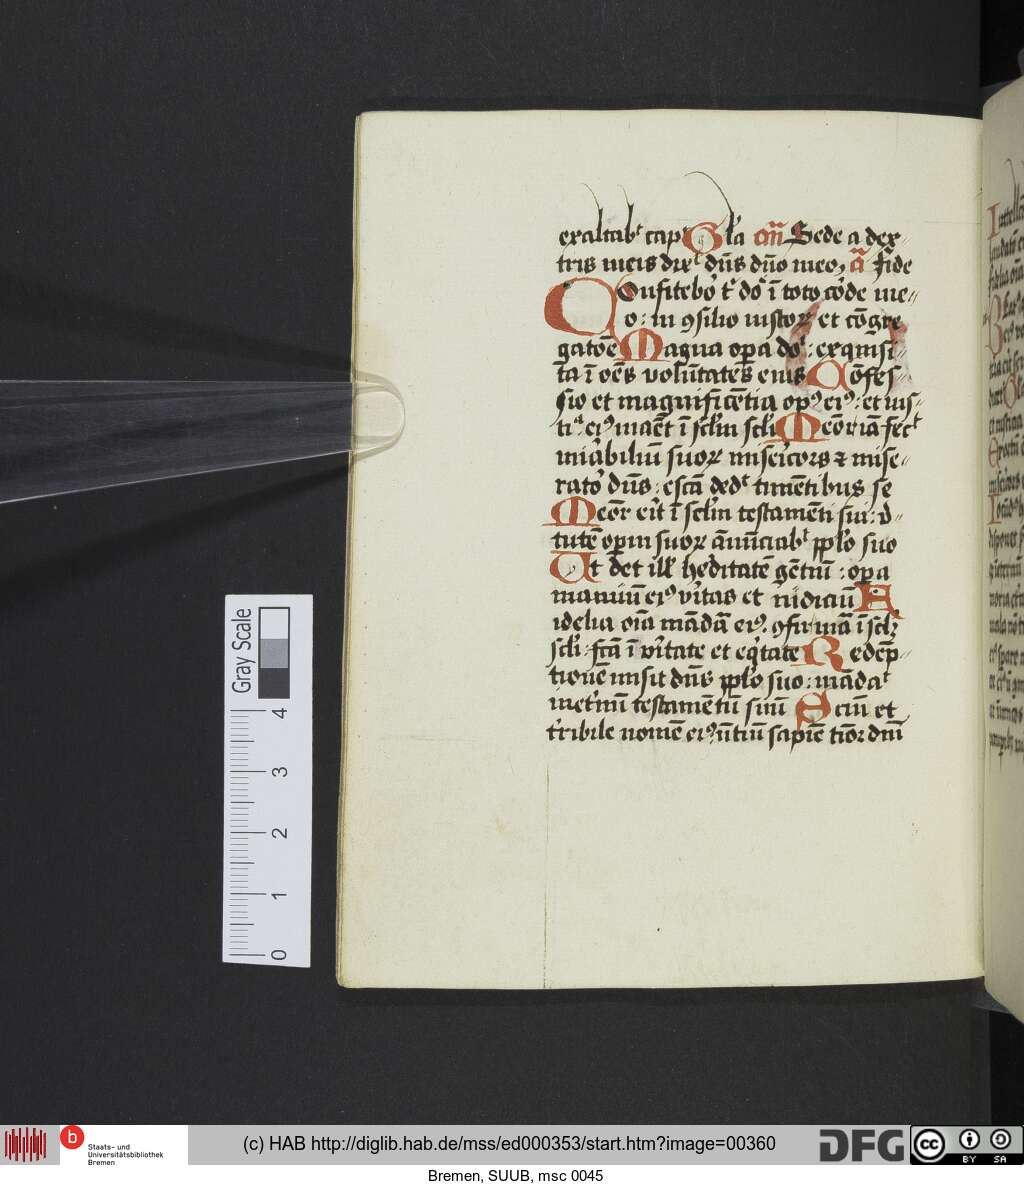 exaltabᵗ cap Gl̄a añ Sede a dex-
tris meis dixᵗ dn̄s dn̄o meo, ā Fide
Confitebo' tᵗ do' ī toto co'de me-
o : in ꝯsilio iustoꝝ et cōgre
gatōe Magna op̄a do' : exquisi-
ta ī oēs volūtates eius Cōfes-
sio et magnificētia opꝰ eiꝰ : et ius-
tiᵃ eiꝰ maēt ī sclm̄ scli Meōriā fecᵗ
miābiliū suoꝝ miseicors ⁊ mise-
rato' dūs : escā dedᵗ timētibus se
Meōr eit ī sclm̄ testamēti sui : v-
tutē opm̄ suoꝝ ānūciabᵗ pplo suo
Ut det ill heditatē gētiū : opa
manuū eiꝰ vitas et iudiciū F
idelia oīa mādā eiꝰ ꝯfirmā ī sclꝫ
scli : fcā ī vitate et eqtate Redēp-
tionē misit dūs pplo suo : mādaᵗ
inet'nū testamētū suū Scm̄ et
t'ribile nomē eiꝰ : ītiū sapiē tiōr dm̄
Gray Scale
4
3
2
1
0
Staats- und
Universitätsbibliothek
Bremen
(c) HAB http://diglib.hab.de/mss/ed000353/start.htm?image=00360
DFG
cc BY SA
Bremen, SUUB, msc 0045